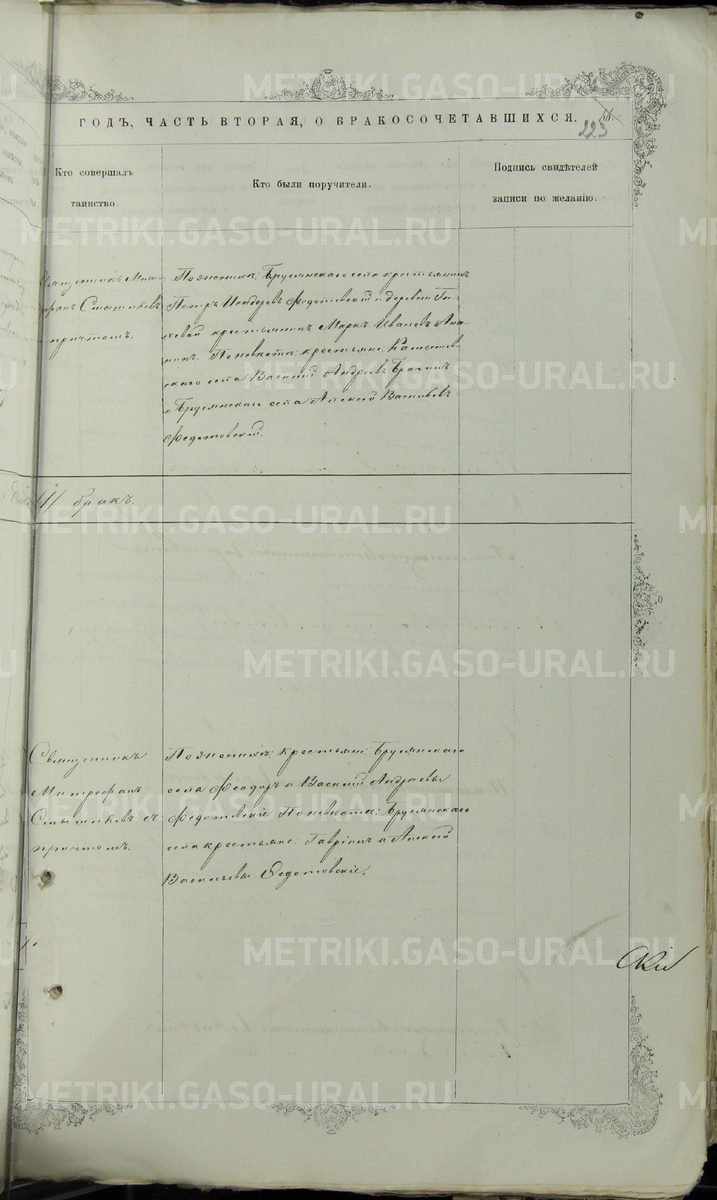 METRIKI.GASO-URAL.RU
ГОДЪ, ЧАСТЬ ВТОРАЯ, О БРАКОСОЧЕТАВШИХСЯ.
223
Кто совершалъ
таинство.
Кто были поручители.
Подпись свидѣтелей
записи по желанію.
Священникъ Мит-
рофанъ
причтомъ.
По женихѣ: Бруснянскаго села крестьянинъ
Петръ Ѳедотовскій и деревни
крестьянинъ Марко Ивановъ
По невѣстѣ: крестьяне:
села Василій Андреевъ
и Бруснянскаго села Алексѣй Васильевъ
Ѳедотовскій.
бракъ.
Священникъ
Митрофанъ
съ
причтомъ.
По женихѣ: крестьяне: Бруснянскаго
села Ѳеодоръ и Василій Андреевы
Ѳедотовскіе. По невѣстѣ: Бруснянскаго
села крестьяне: Гавріилъ и Алексѣй
Васильевы Ѳедотовскіе.